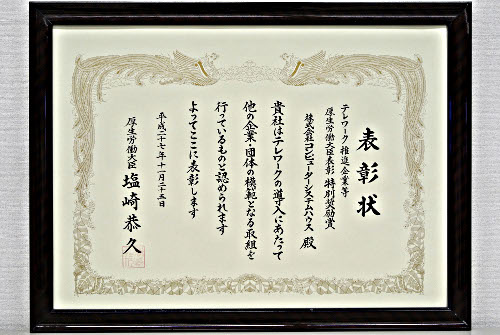 表彰状
テレワーク推進企業等
厚生労働大臣表彰 特別奨励賞
株式会社コンピューターシステムハウス 殿
貴社はテレワークの導入にあたって
他の企業・団体の模範となる取組を
行っているものと認められます
よってここに表彰します
平成二十七年十一月二十五日
厚生労働大臣 塩崎恭久